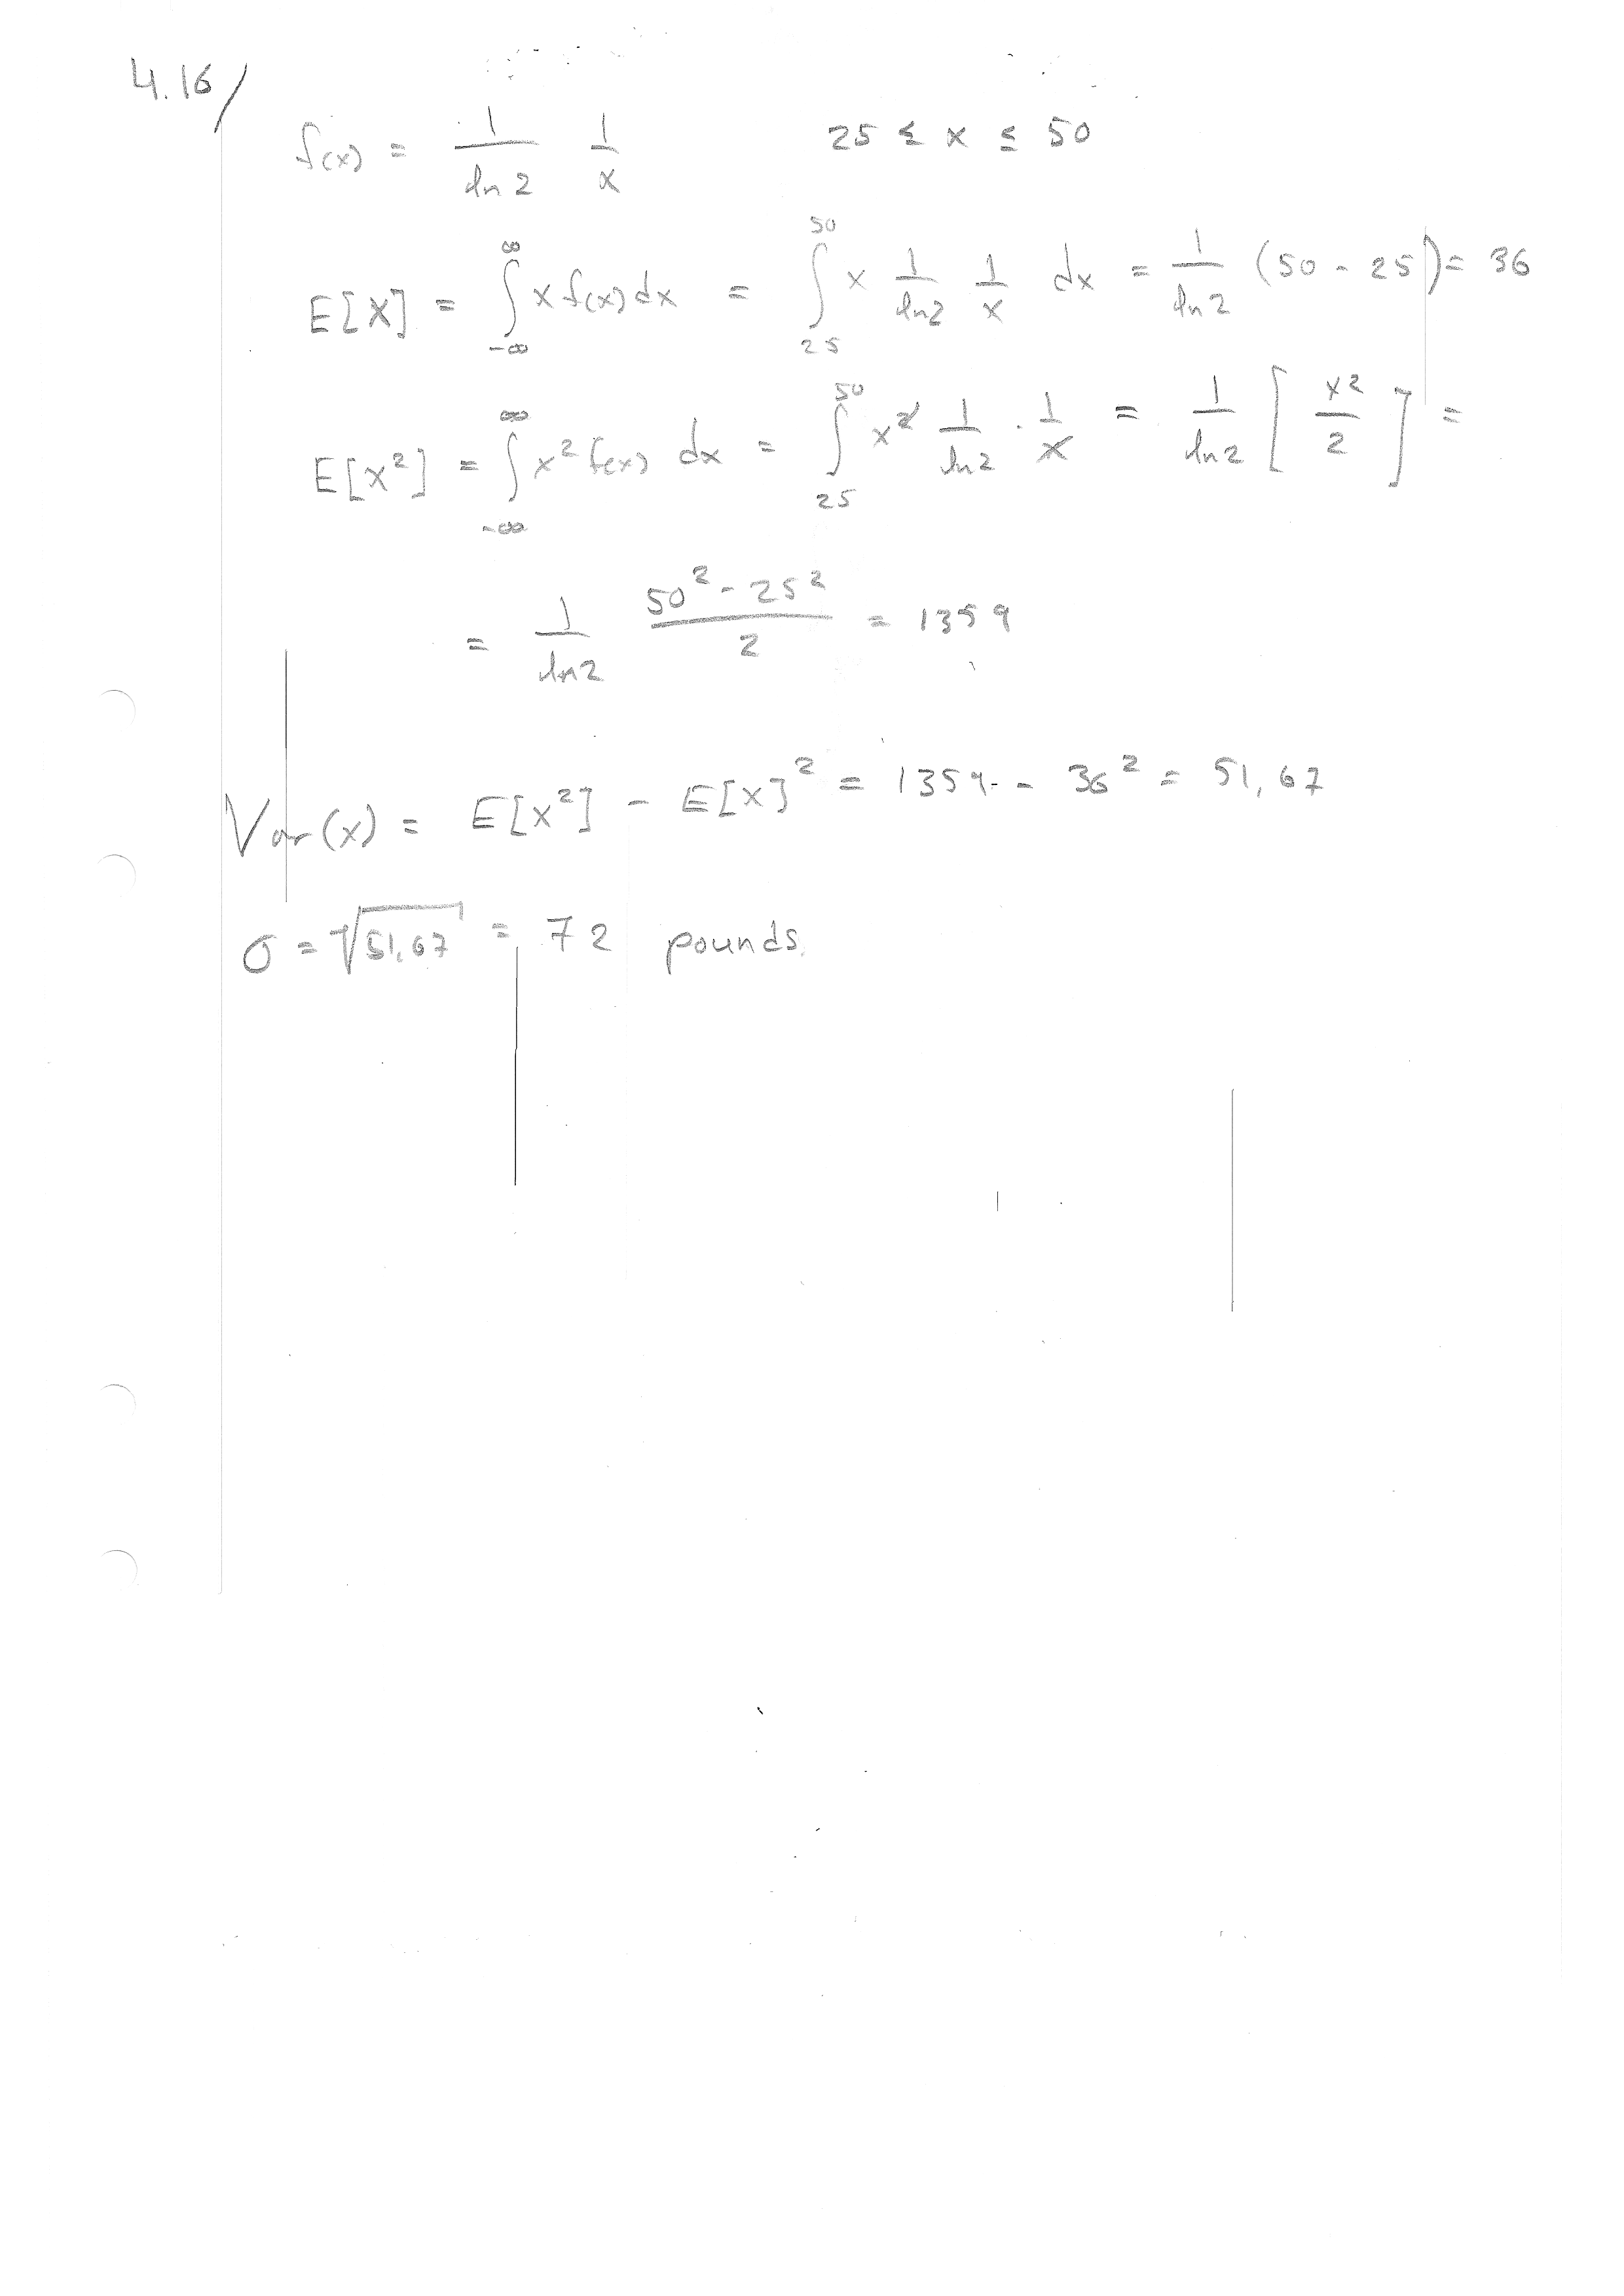 4.16/
f(x) = 1/ln2 1/x 25 ≤ x ≤ 50
E[X] = ∫_{-∞}^{∞} x f(x) dx = ∫_{25}^{50} x 1/ln2 1/x dx = 1/ln2 (50 - 25) = 36
E[X²] = ∫_{-∞}^{∞} x² f(x) dx = ∫_{25}^{50} x² 1/ln2 · 1/x = 1/ln2 [x²/2] =
= 1/ln2 (50² - 25²)/2 = 1359
Var(x) = E[X²] - E[X]² = 1359 - 36² = 51,67
σ = √51,67 = 72 pounds.